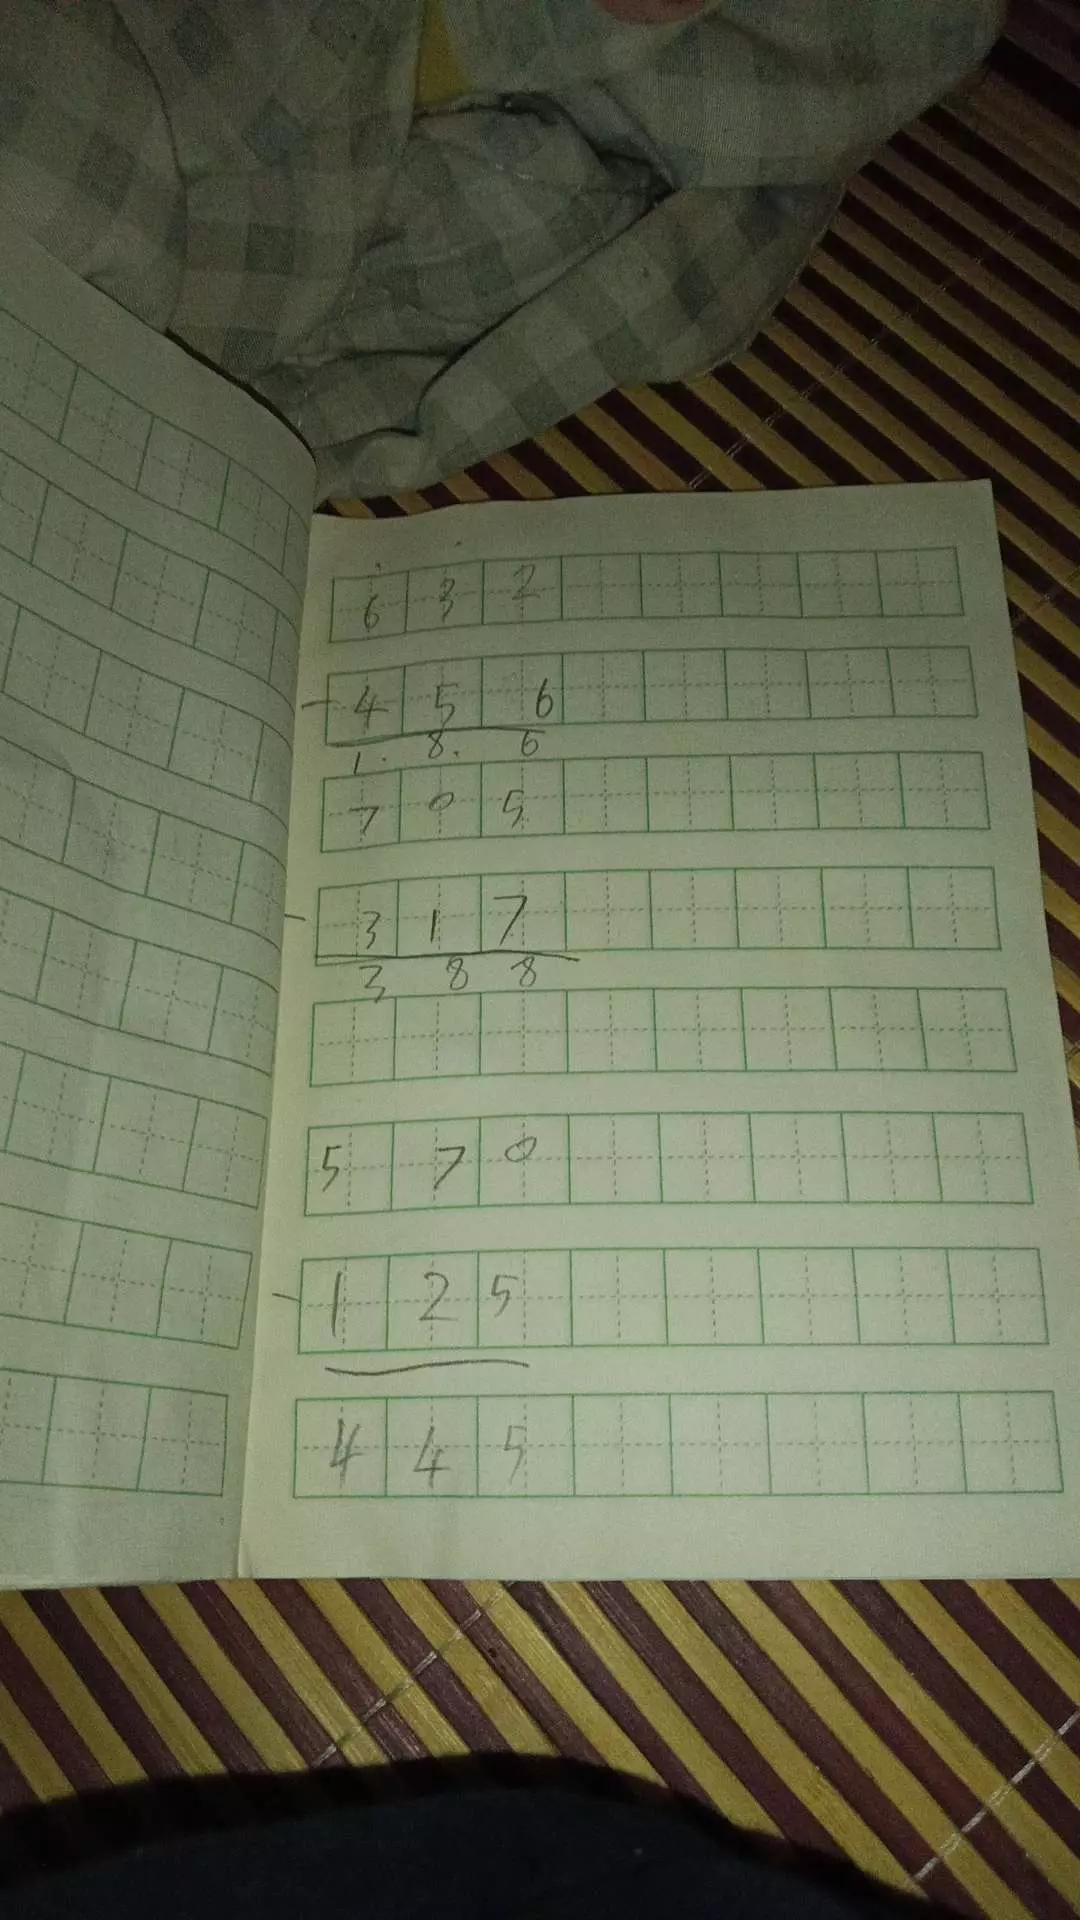 6 3 2
- 4 5 6
1. 8. 6
7 0 5
- 3 1 7
3 8 8
5 7 0
- 1 2 5
4 4 5